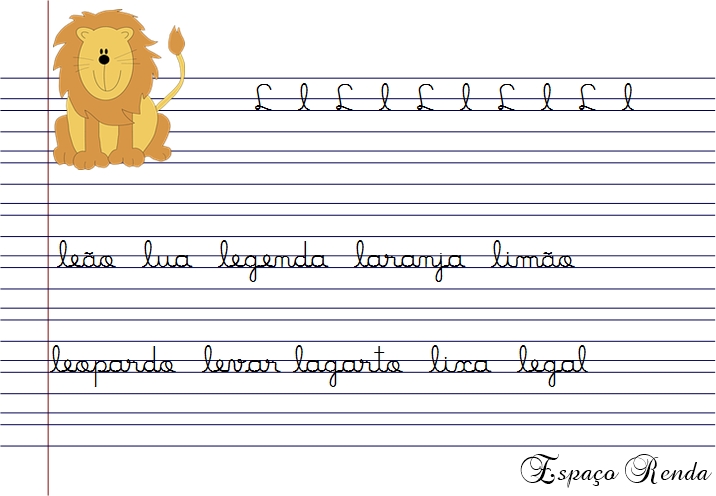 L l L l L l L l L l
leão lua legenda laranja limão
leopardo levar lagarto lixa legal
Espaço Renda